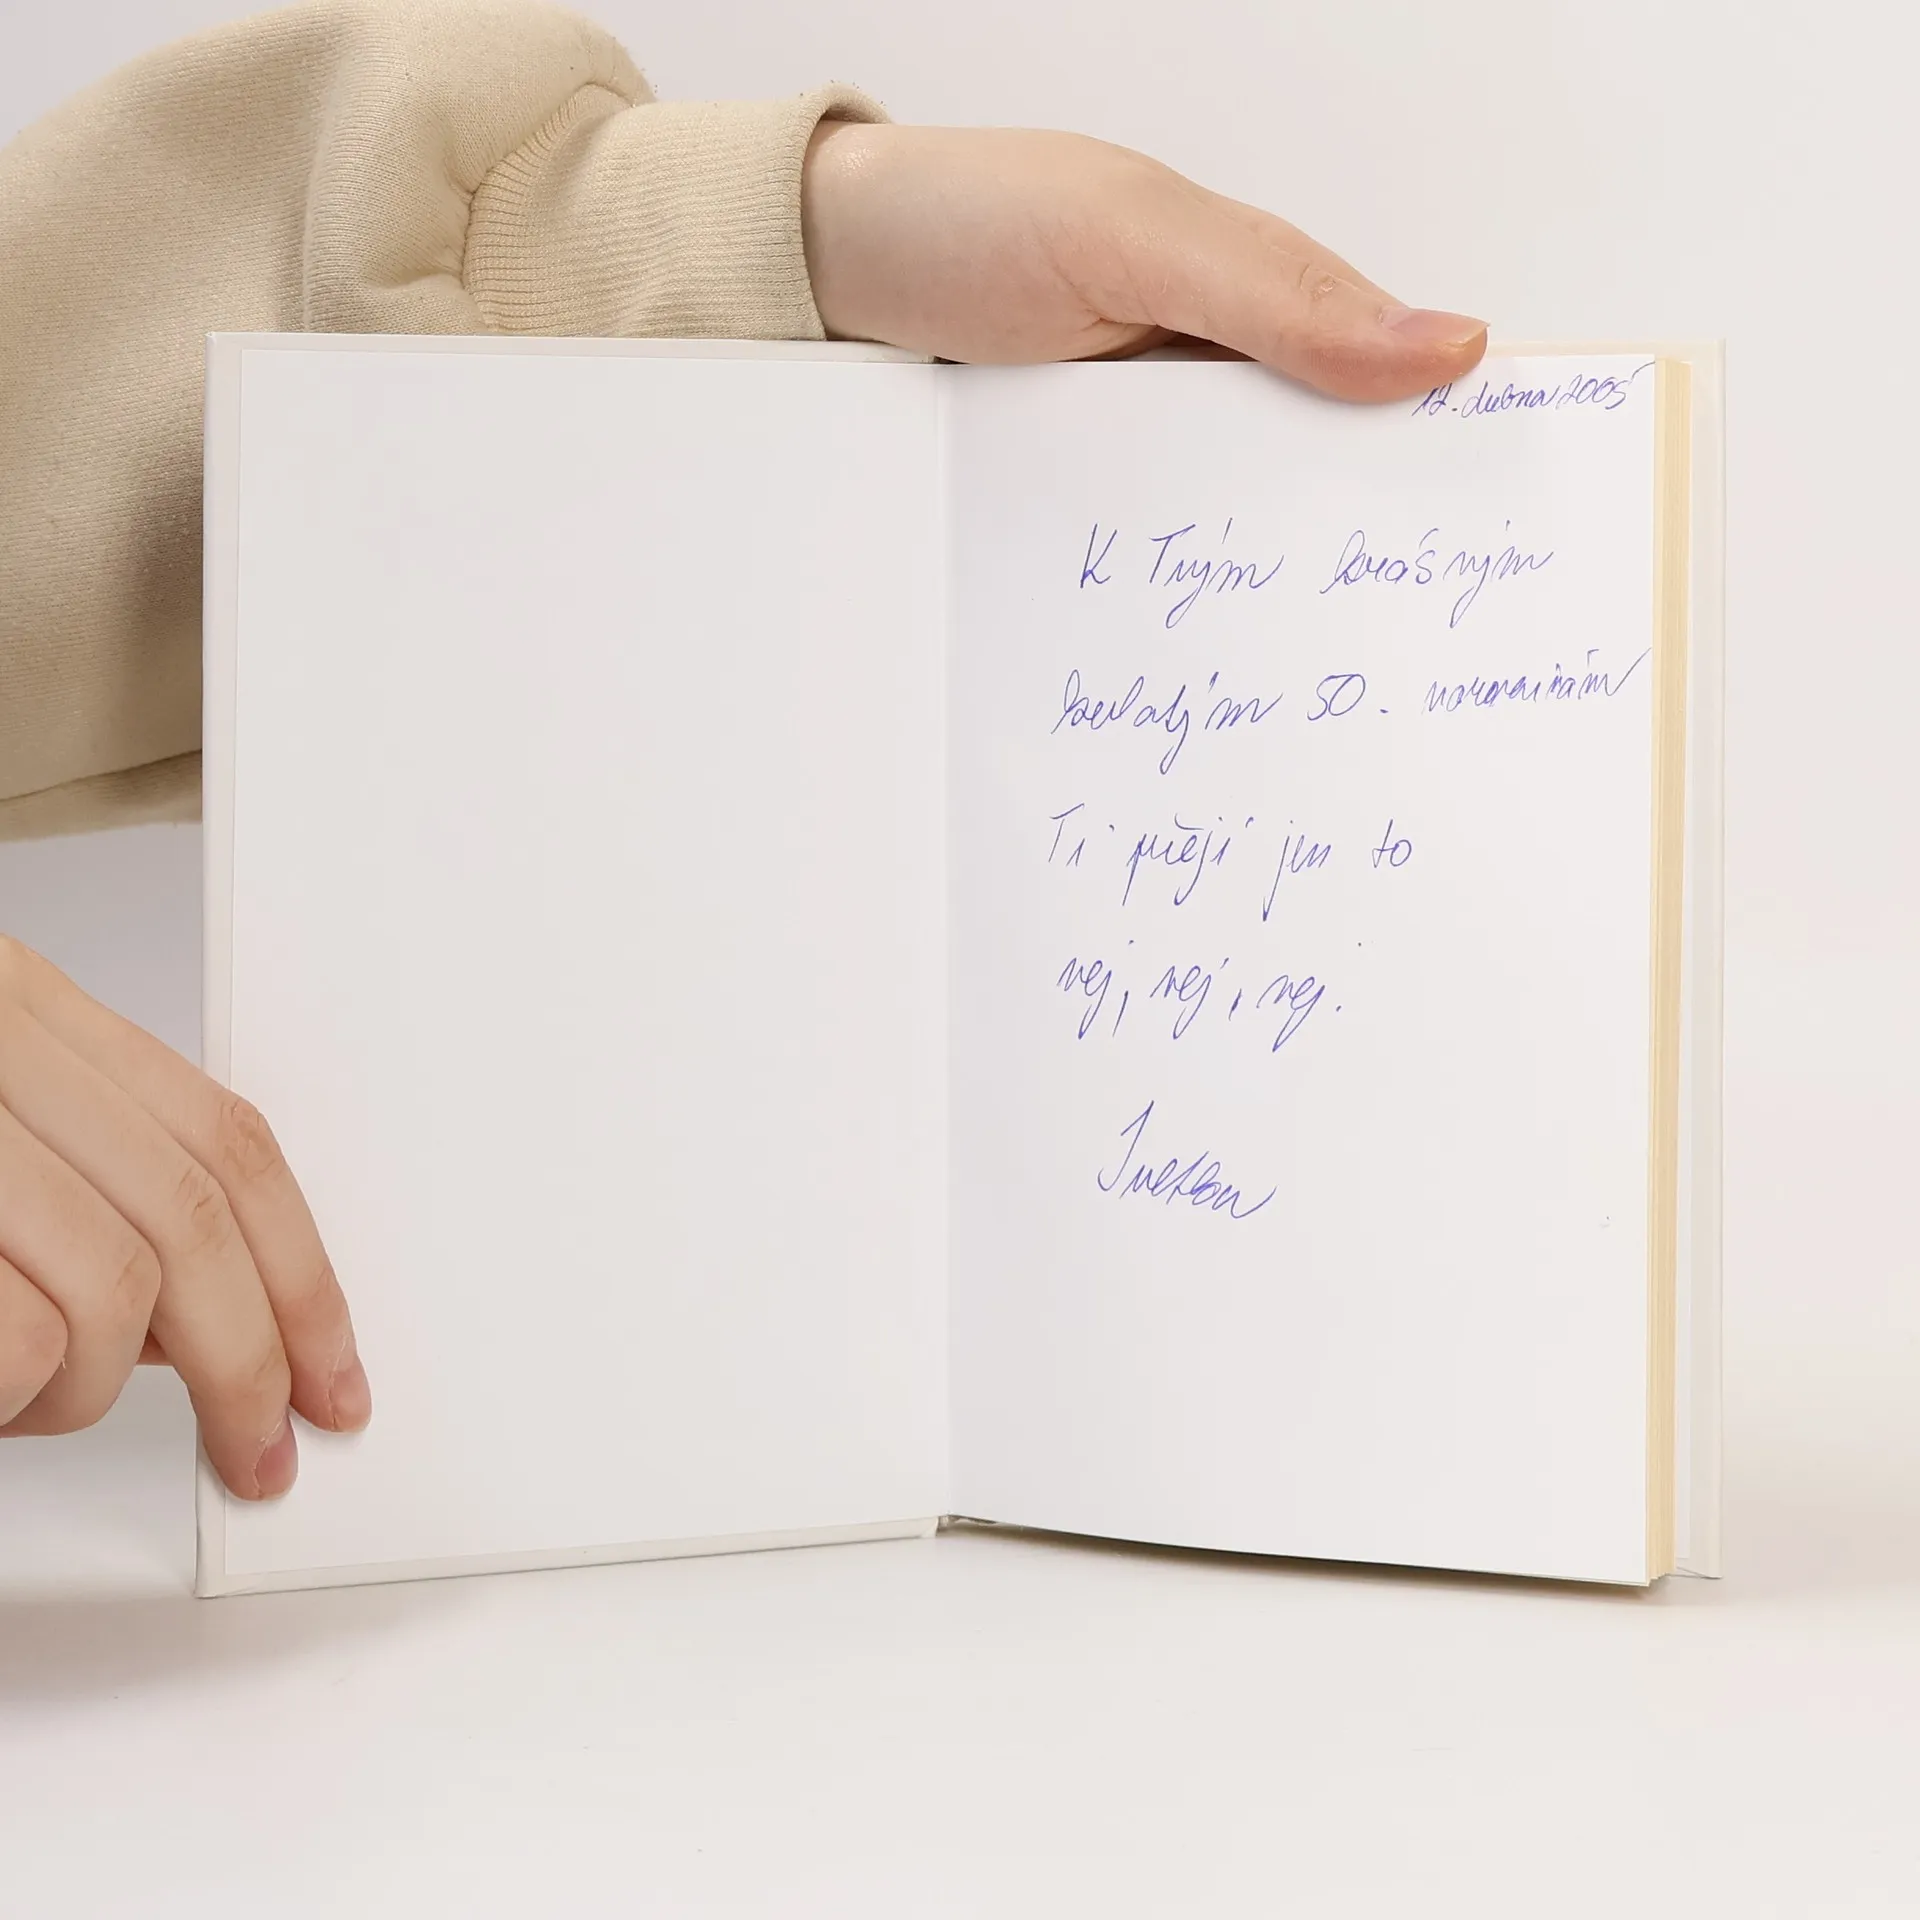 12. dubna 2005
K Tvým krásným
kulatým 50. narozeninám
Ti přeji jen to
nej, nej, nej.